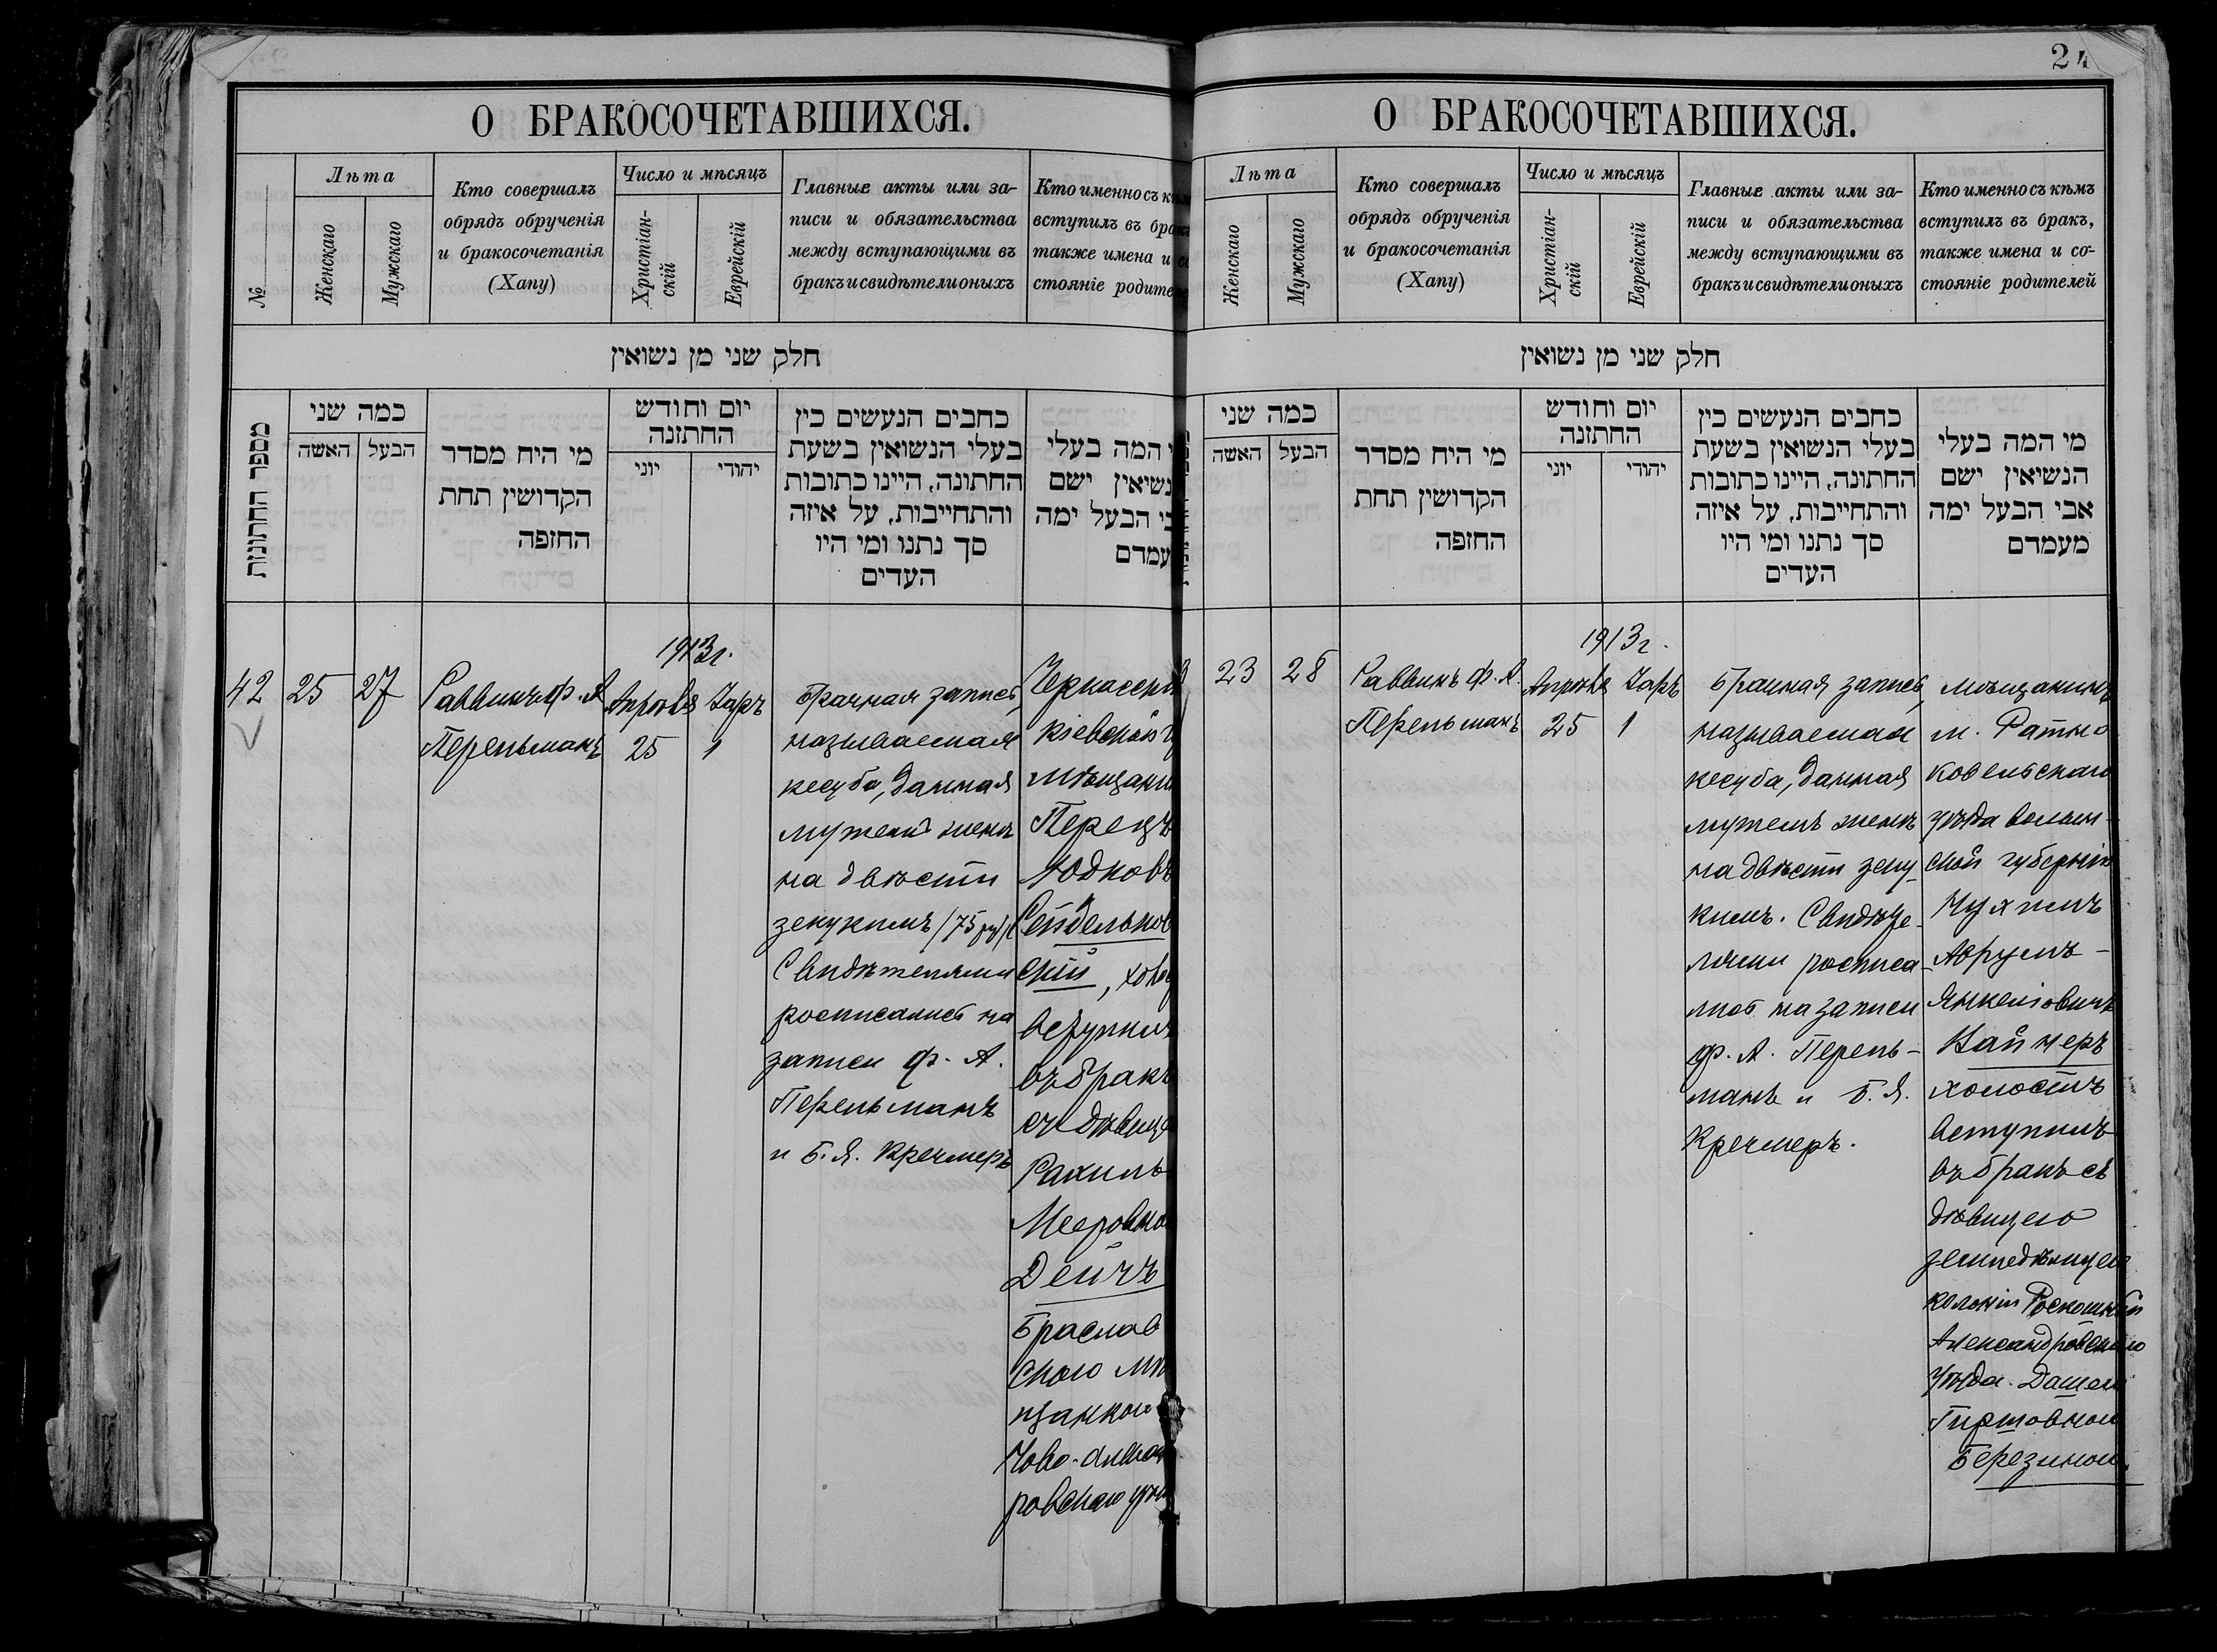 О БРАКОСОЧЕТАВШИХСЯ.
№
Лѣта
Женскаго
Мужскаго
Кто совершалъ
обрядъ обрученія
и бракосочетанія
(Хапу)
Число и мѣсяцъ
Христіан-
скій
Еврейскій
Главные акты или за-
писи и обязательства
между вступающими въ
бракъ и свидѣтели оныхъ
Кто именно съ
вступилъ въ
также имена и
стояніе
חלק שני מן נשואין
מספר החתונות
כמה שני
האשה
הבעל
מי היח מסדר
הקדושין תחת
החזפה
יום וחודש
החתזנה
יוני
יהודי
כחבים הנעשים כין
בעלי הנשואין בשעת
החתונה, היינו כתובות
והתחייבות, על איזה
סך נתנו ומי היו
העדים
המה בעלי
נשיאין ישם
הבעל ימה
42
25
27
Раввинъ Ф. А
Перельманъ
1913г.
Апрѣля
25
1
Брачная запись,
называемая
кесуба, данная
мужемъ женѣ
на двѣсти
зекукимъ (75 ру)
Свидѣтелями
росписались на
записи Ф. А.
Перельманъ
и Б. Я. Кречмеръ
Кіевской
Перецъ
Юдковъ
Сендельков
скій,
въ бракъ
съ
Рахиль
Мееровно
Дейчъ
Браслав
ского
щанкою
Ново-
ровскаго
24
О БРАКОСОЧЕТАВШИХСЯ.
Лѣта
Женскаго
Мужскаго
Кто совершалъ
обрядъ обрученія
и бракосочетанія
(Хапу)
Число и мѣсяцъ
Христіан-
скій
Еврейскій
Главные акты или за-
писи и обязательства
между вступающими въ
бракъ и свидѣтели оныхъ
Кто именно съ кѣмъ
вступилъ въ бракъ,
также имена и со-
стояніе родителей
חלק שני מן נשואין
כמה שני
האשה
הבעל
מי היח מסדר
הקדושין תחת
החזפה
יום וחודש
החתזנה
יוני
יהודי
כחבים הנעשים כין
בעלי הנשואין בשעת
החתונה, היינו כתובות
והתחייבות, על איזה
סך נתנו ומי היו
העדים
מי המה בעלי
הנשיאין ישם
אבי הבעל ימה
מעמדם
23
28
Раввинъ Ф. А.
Перельманъ
1913г.
Апрѣля
25
1
Брачная запись,
называемая
кесуба, данная
мужемъ женѣ
на двѣсти зеку-
кимъ. Свидѣте-
лями росписа-
лись на записи
Ф. А. Перель-
манъ и Б. Я.
Кречмеръ.
мѣщанинъ
м. Ратно
Ковельскаго
уѣзда Волын-
ской губерніи
Аврумъ-
Янкелiовичъ
холостъ
вступилъ
въ бракъ съ
дѣвицею
колоніи Роскошной
Александровскаго
уѣзда
Гиршовною
Березиной